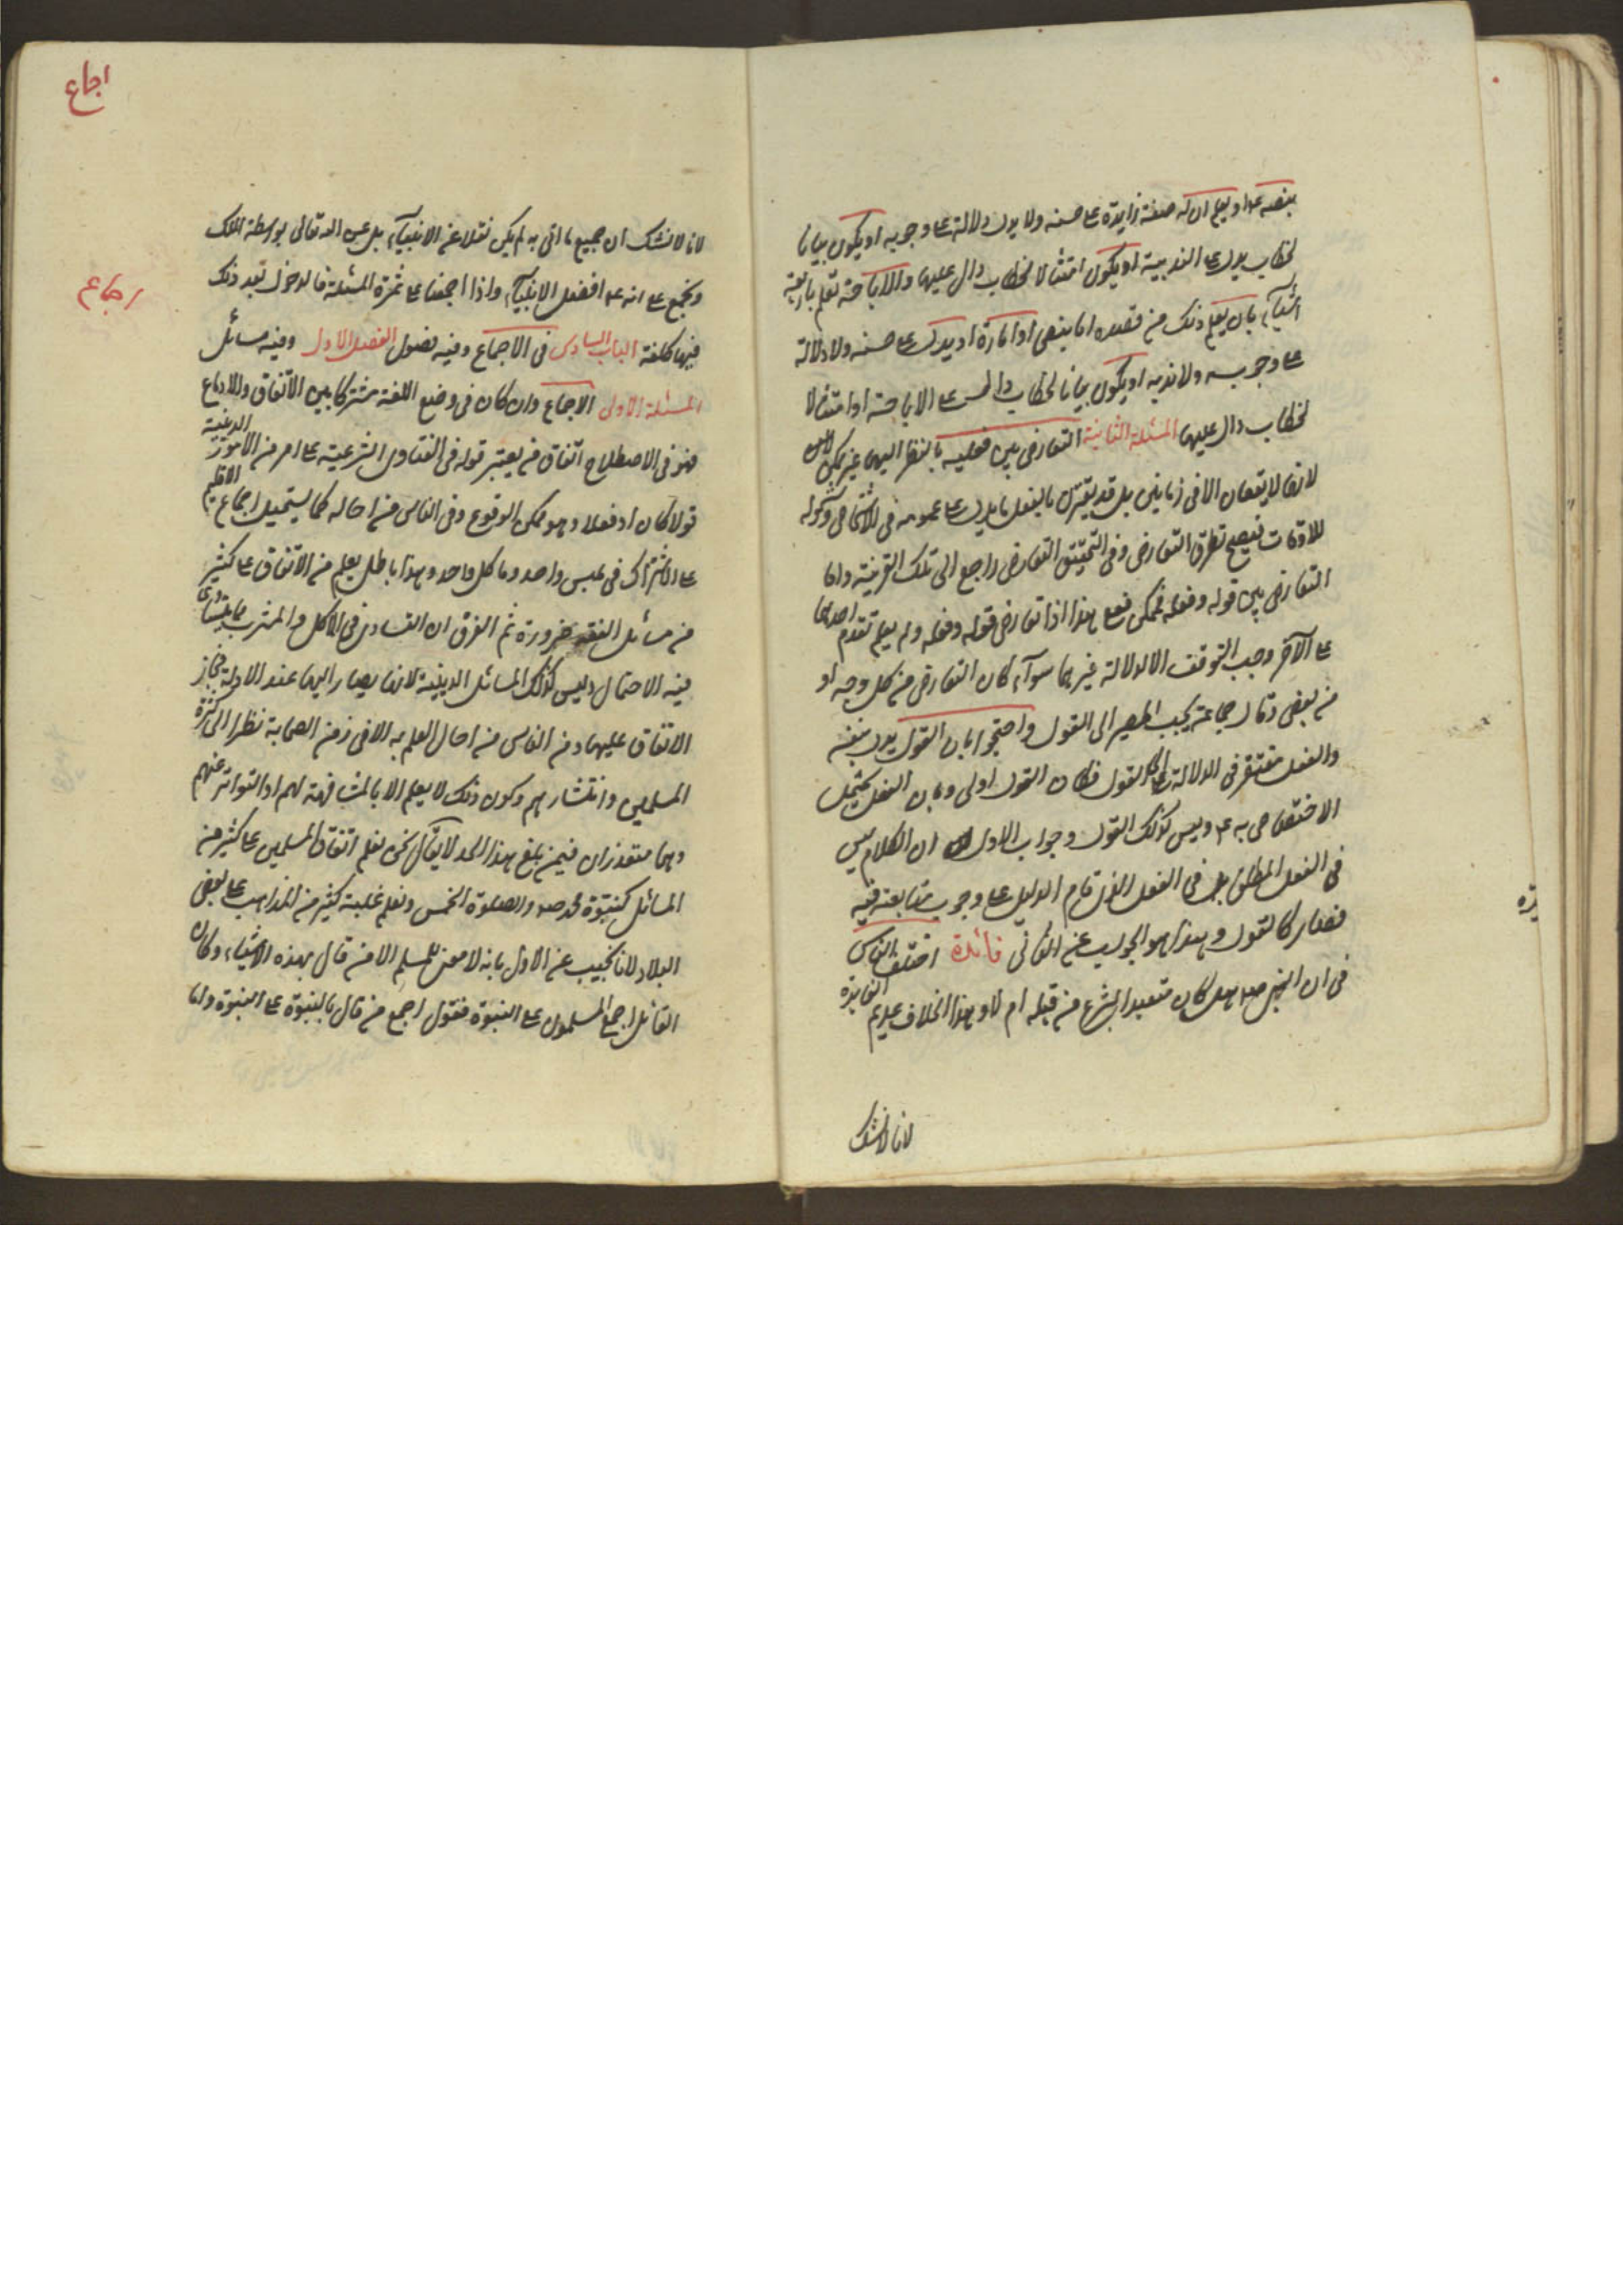 بنصه ع او يعلم ان له صفة زايدة ع حسنه ولا يدل دلالة ع وجوبه او يكون بيانا
لخطاب يدل ع الندبية او يكون امتثالا لخطاب دال عليها والاباحة تعلم باربعة
اشيآء بان يعلم ذلك من قصده اما بنص او امارة او يدل ع حسنه ولا دلالة
ع وجوبه ولا ندبه او يكون بيانا لخطاب دال ع الاباحة او امتثالا
لخطاب دال عليها المسئلة الثانية التعارض بين فعليه بالنظر اليها غير ممكن
لانهما لا يقعان الا فى زمانين بل قد يقترن بالفعل ما يدل ع عمومه فى الاشخاص وكونه
للاوقات فيصح تطرق التعارض وفى التحقيق التعارض راجع الى تلك القرينة واما
التعارض بين قوله وفعله فممكن فعلى هذا اذا تعارض قوله وفعله ولم يعلم تقدم احدهما
ع الآخر وجب التوقف الا لدلالة غيرهما سوآء كان التعارض من كل وجه او
من بعض وقال جماعة يجب المصير الى القول واحتجوا بان القول يدل بنفسه
والفعل مفتقر فى الدلالة الى القول فكان القول اولى وبان الفعل يحتمل
الاختصاص به ع وليس كذلك القول وجواب الاول ان الكلام ليس
فى الفعل المطلق بل فى الفعل الذى قام الدليل ع وجوب متابعته فيه
فصار كالقول وهذا هو الجواب عن الثانى فائدة اختلف الناس
فى ان النبى صه هل كان متعبدا بشرع من قبله ام لا وهذا الخلاف عديم الفايدة
لانا لا نشك
اجماع
لانا لا نشك ان جميع ما اتى به لم يكن نقلا عن الانبيآء بل عن الله تعالى بواسطة الملك
ونجمع ع انه ع افضل الانبيآء واذا اجمعنا ع ثمرة المسئلة فالدخول بعد ذلك
اجماع
فيها كلفة الباب السادس فى الاجماع وفيه فصول الفصل الاول وفيه مسائل
المسئلة الاولى الاجماع وان كان فى وضع اللغة مشتركا بين الاتفاق والازماع
فهو فى الاصطلاح اتفاق من يعتبر قوله فى الفتاوى الشرعية ع امر من الامور الدينية
قولا كان او فعلا وهو ممكن الوقوع وفى الناس من احاله كما يستحيل اجماع الاقليم
ع الاشتراك فى ملبس واحد وماكل واحد وهذا باطل يعلم من الاتفاق ع كثير
من مسائل الفقه ضرورة ثم الفرق ان التساوى فى الاكل والمشرب مما يتساوى
فيه الاحتمال وليس كذلك المسائل الدينية لانها يصار اليها عند الادلة فجاز
الاتفاق عليها ومن الناس من احال العلم به الا فى زمن الصحابة نظرا الى كثرة
المسلمين وانتشارهم وكون ذلك لا يعلم الا بالمشافهة لهم او التواتر عنهم
وهما متعذران فيمن بلغ هذا الحد لا يقال نحن نعلم اتفاق المسلمين ع كثير من
المسائل كنبوة محمد صه والصلوة الخمس ونعلم غلبة كثير من المذاهب ع بعض
البلاد لانا نجيب عن الاول بانه لا معنى للمسلم الا من قال بهذه الاشياء وكان
القائل اجمع المسلمون ع النبوة فقول اجمع من قال بالنبوة ع النبوة واما